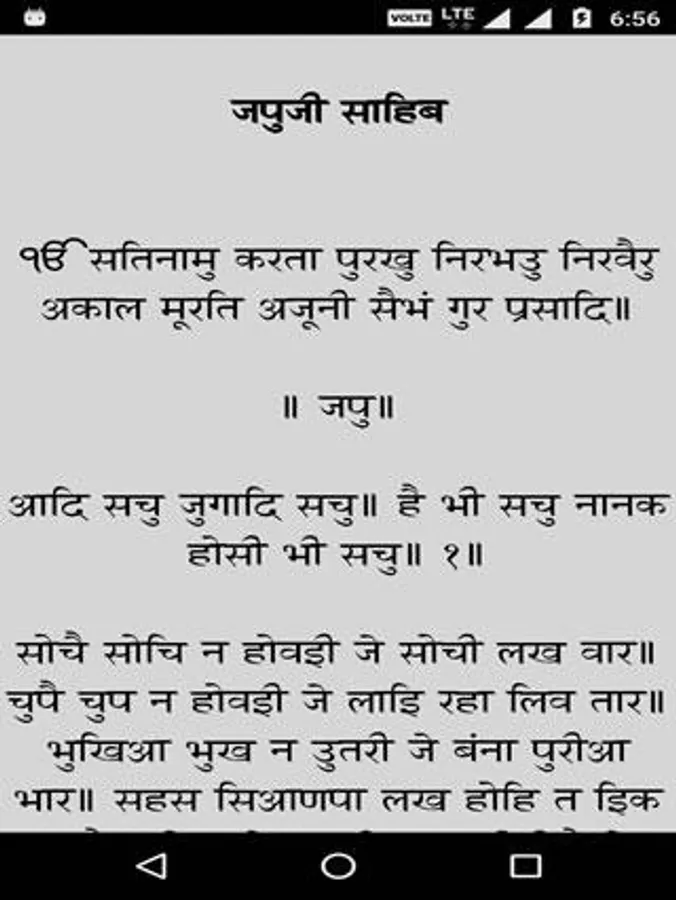 VOLTE LTE 6:56
जपुजी साहिब
ੴ सतिनामु करता पुरखु निरभउु निरवैरु
अकाल मूरति अजूनी सैभं गुर प्रसादि॥
॥ जपु॥
आदि सचु जुगादि सचु॥ है भी सचु नानक
होसी भी सचु॥ १॥
सोचै सोचि न होवइी जे सोची लख वार॥
चुपै चुप न होवइी जे लाइि रहा लिव तार॥
भुखिआ भुख न उुतरी जे बंना पुरीआ
भार॥ सहस सिआणपा लख होहि त इिक